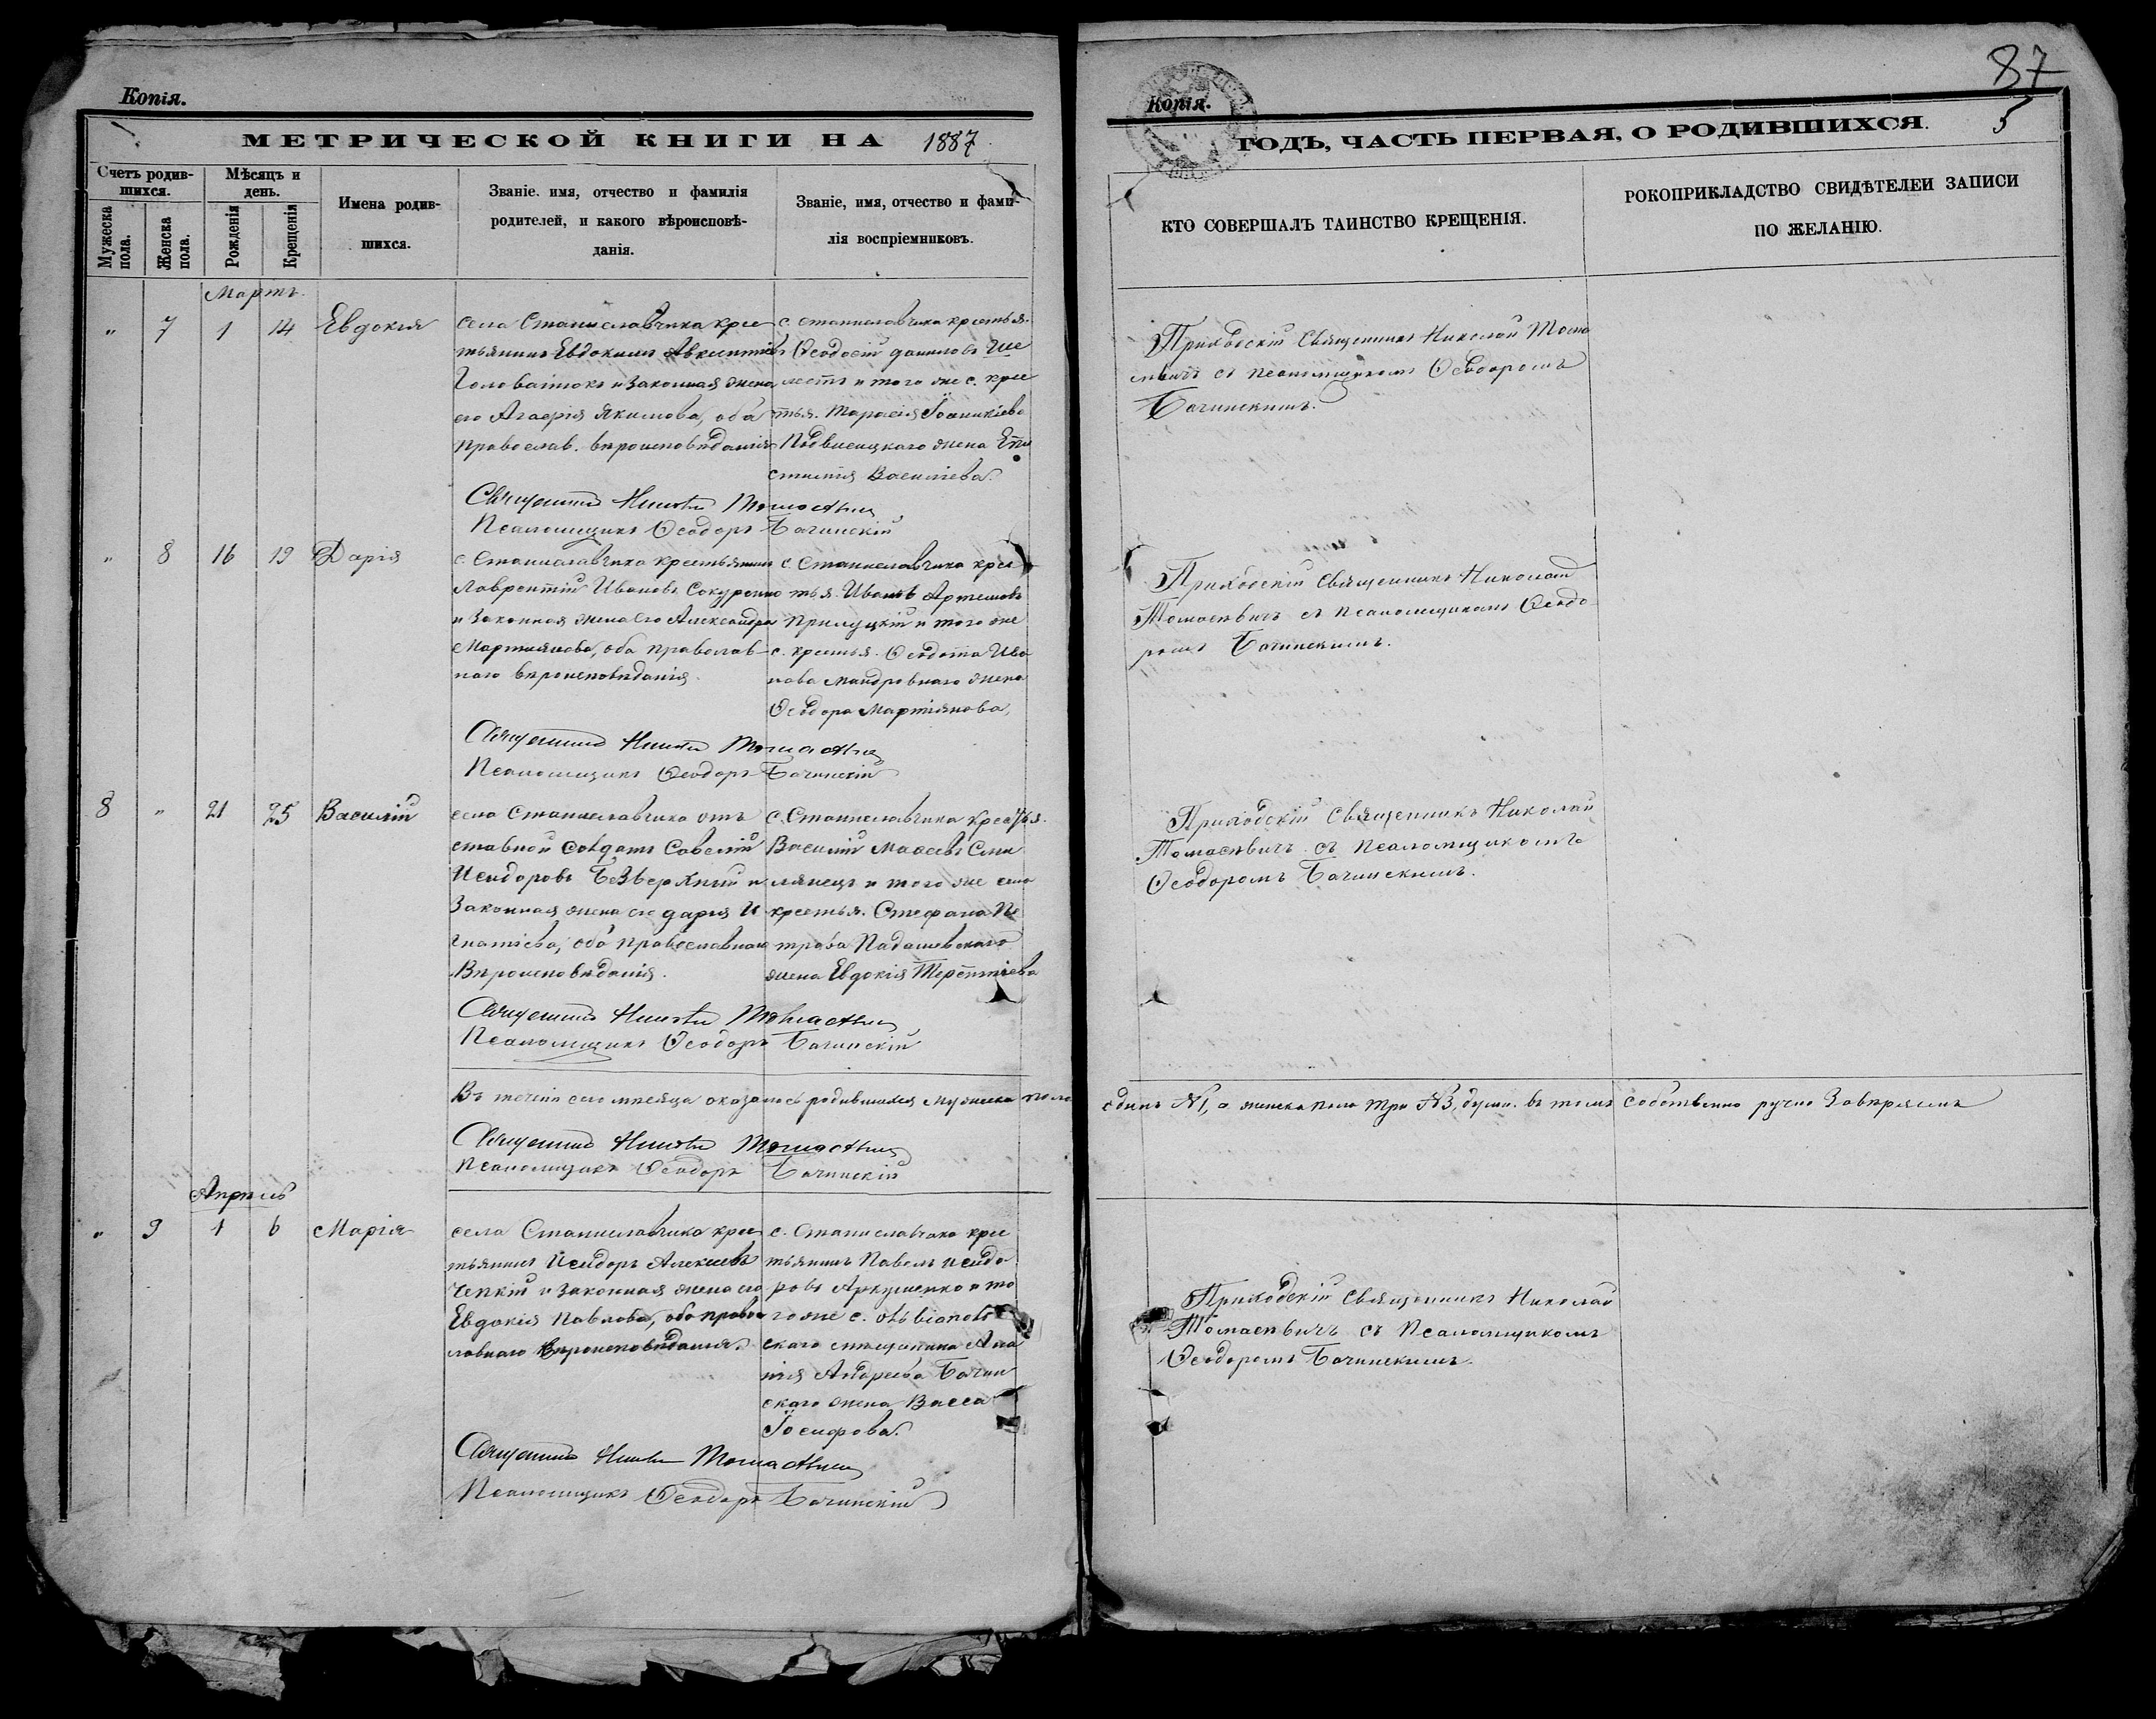 Копія.
МЕТРИЧЕСКОЙ КНИГИ НА 1887
Счетъ родив-
шихся.
Мужеска пола.
Женска пола.
Мѣсяцъ и
день.
Рожденія
Крещенія
Имена родив-
шихся.
Званіе. имя, отчество и фамилія
родителей, и какого вѣроисповѣ-
данія.
Званіе, имя, отчество и фами-
лія воспріемниковъ.
Мартъ
" 7 1 14 Евдокія
села Станиславчика крес
тьянинъ Евдокимъ Авксентіевъ
Головатюкъ и законная жена
его Агафія Якимова, оба
православ. вѣроисповѣданія
с. Станиславчика крестья.
Ѳеодосій Даниловъ Ше
лестъ и того же с. крес
тья. Тарасія Іоаникіева
Подвысоцкаго жена Епи
стимія Василіева.
Священникъ Николай Томасевичъ
Псаломщикъ Ѳеодоръ Бачинскій
" 8 16 19 Дарія
с. Станиславчика крестьянинъ
Лаврентій Ивановъ Сокуренко
и законная жена его Александра
Мартиянова, оба православ-
наго вѣроисповѣданія.
с. Станиславчика крес
тья. Иванъ Артемовъ
Прилуцкій и того же
с. крестья. Ѳеодота Ива
нова жена
Ѳеодора Мартіянова,
Священникъ Николай Томасевичъ
Псаломщикъ Ѳеодоръ Бачинскій
8 " 21 25 Василій
села Станиславчика от
ставной солдатъ Савелій
Исидоровъ Безверхній и
законная жена его Дарія И
гнатіева, оба православнаго
вѣроисповѣданія.
с. Станиславчика крестья.
Василій Сми
лянецъ и того же села
крестья. Стефана Пе
трова Падашевскаго
жена Евдокія Терентіева
Священникъ Николай Томасевичъ
Псаломщикъ Ѳеодоръ Бачинскій
Въ теченіи сего мѣсяца оказалось родившихся мужеска пола
Священникъ Николай Томасевичъ
Псаломщикъ Ѳеодоръ Бачинскій
Апрѣль
" 9 1 6 Марія
села Станиславчика крес
тьянинъ Исидоръ Алексіевъ
Чепкій и законная жена его
Евдокія Павлова, оба правос
лавнаго вѣроисповѣданія.
с. Станиславчика крес
тьянинъ Павелъ Исидо
ровъ Аркушенко и то
гоже с.
скаго мѣщанина Ана
нія Андреева Бачин
скаго жена Васса
Іосифова.
Священникъ Николай Томасевичъ
Псаломщикъ Ѳеодоръ Бачинскій
87
Копія.
ГОДЪ, ЧАСТЬ ПЕРВАЯ, О РОДИВШИХСЯ.
5
КТО СОВЕРШАЛЪ ТАИНСТВО КРЕЩЕНІЯ.
РОКОПРИКЛАДСТВО СВИДѢТЕЛЕИ ЗАПИСИ
ПО ЖЕЛАНІЮ.
Приходскій Священникъ Николай Тома
севичъ съ псаломщикомъ Ѳеодоромъ
Бачинскимъ.
Приходскій Священникъ Николай
Томасевичъ съ псаломщикомъ Ѳеодо
ромъ Бачинскимъ.
Приходскій Священникъ Николай
Томасевичъ съ псаломщикомъ
Ѳеодоромъ Бачинскимъ.
одинъ №1, а женска пола три №3, души. въ томъ собственно ручно завѣряемъ
Приходскій Священникъ Николай
Томасевичъ съ псаломщикомъ
Ѳеодоромъ Бачинскимъ.